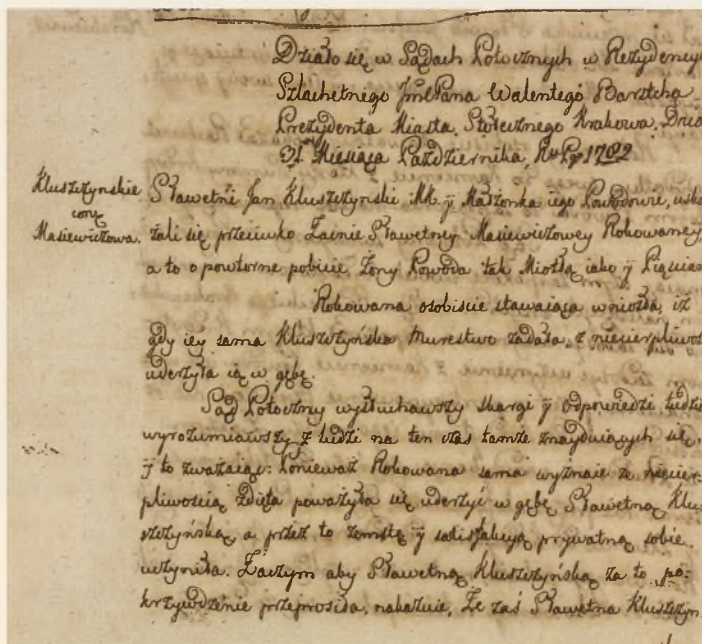 Działo się w Sądach Potocznych w Rezydency
Szlachetnego JmćPana Walentego Bartscha
Prezydenta Miasta Stołecznego Krakowa Dnia
31 Miesiąca Października, Rku Pgo 1782
Kluszczynskie
conę
Masiewiczowa.
Sławetni Jan Kluszczynski MK ÿ Małżonka iego Powodowie, uska
rżali się przeciwko Zacnie Sławetney Masiewiczowey Rokowaney
a to o powtorne pobicie Żony Powoda tak Miotłą iako ÿ Pięściam
Rokowana osobiscie stawaiąca wniosła, iż
gdy iey sama Kluszczyńska Murestwo zadała, z niecierpliwoś
uderzyła ią w gębę.
Sąd Potoczny wysłuchawszy skargi ÿ odpowiedzi tudzie
wyrozumiawszy z ludzi na ten czas tamże znayduiących się,
ÿ to zważaiąc: Ponieważ Rokowana sama wyznaie że niecier-
pliwoscią zdięta poważyła się uderzyć w gębę Sławetną Klu
szczyńską, a przez to zemstę ÿ satisfakcyą prywatną sobie
uczyniła. Zaczym aby Sławetną Kluszczyńską za to po-
krzywdzenie przeprosiła, nakazuie, Że zaś Sławetna Kluszczyn